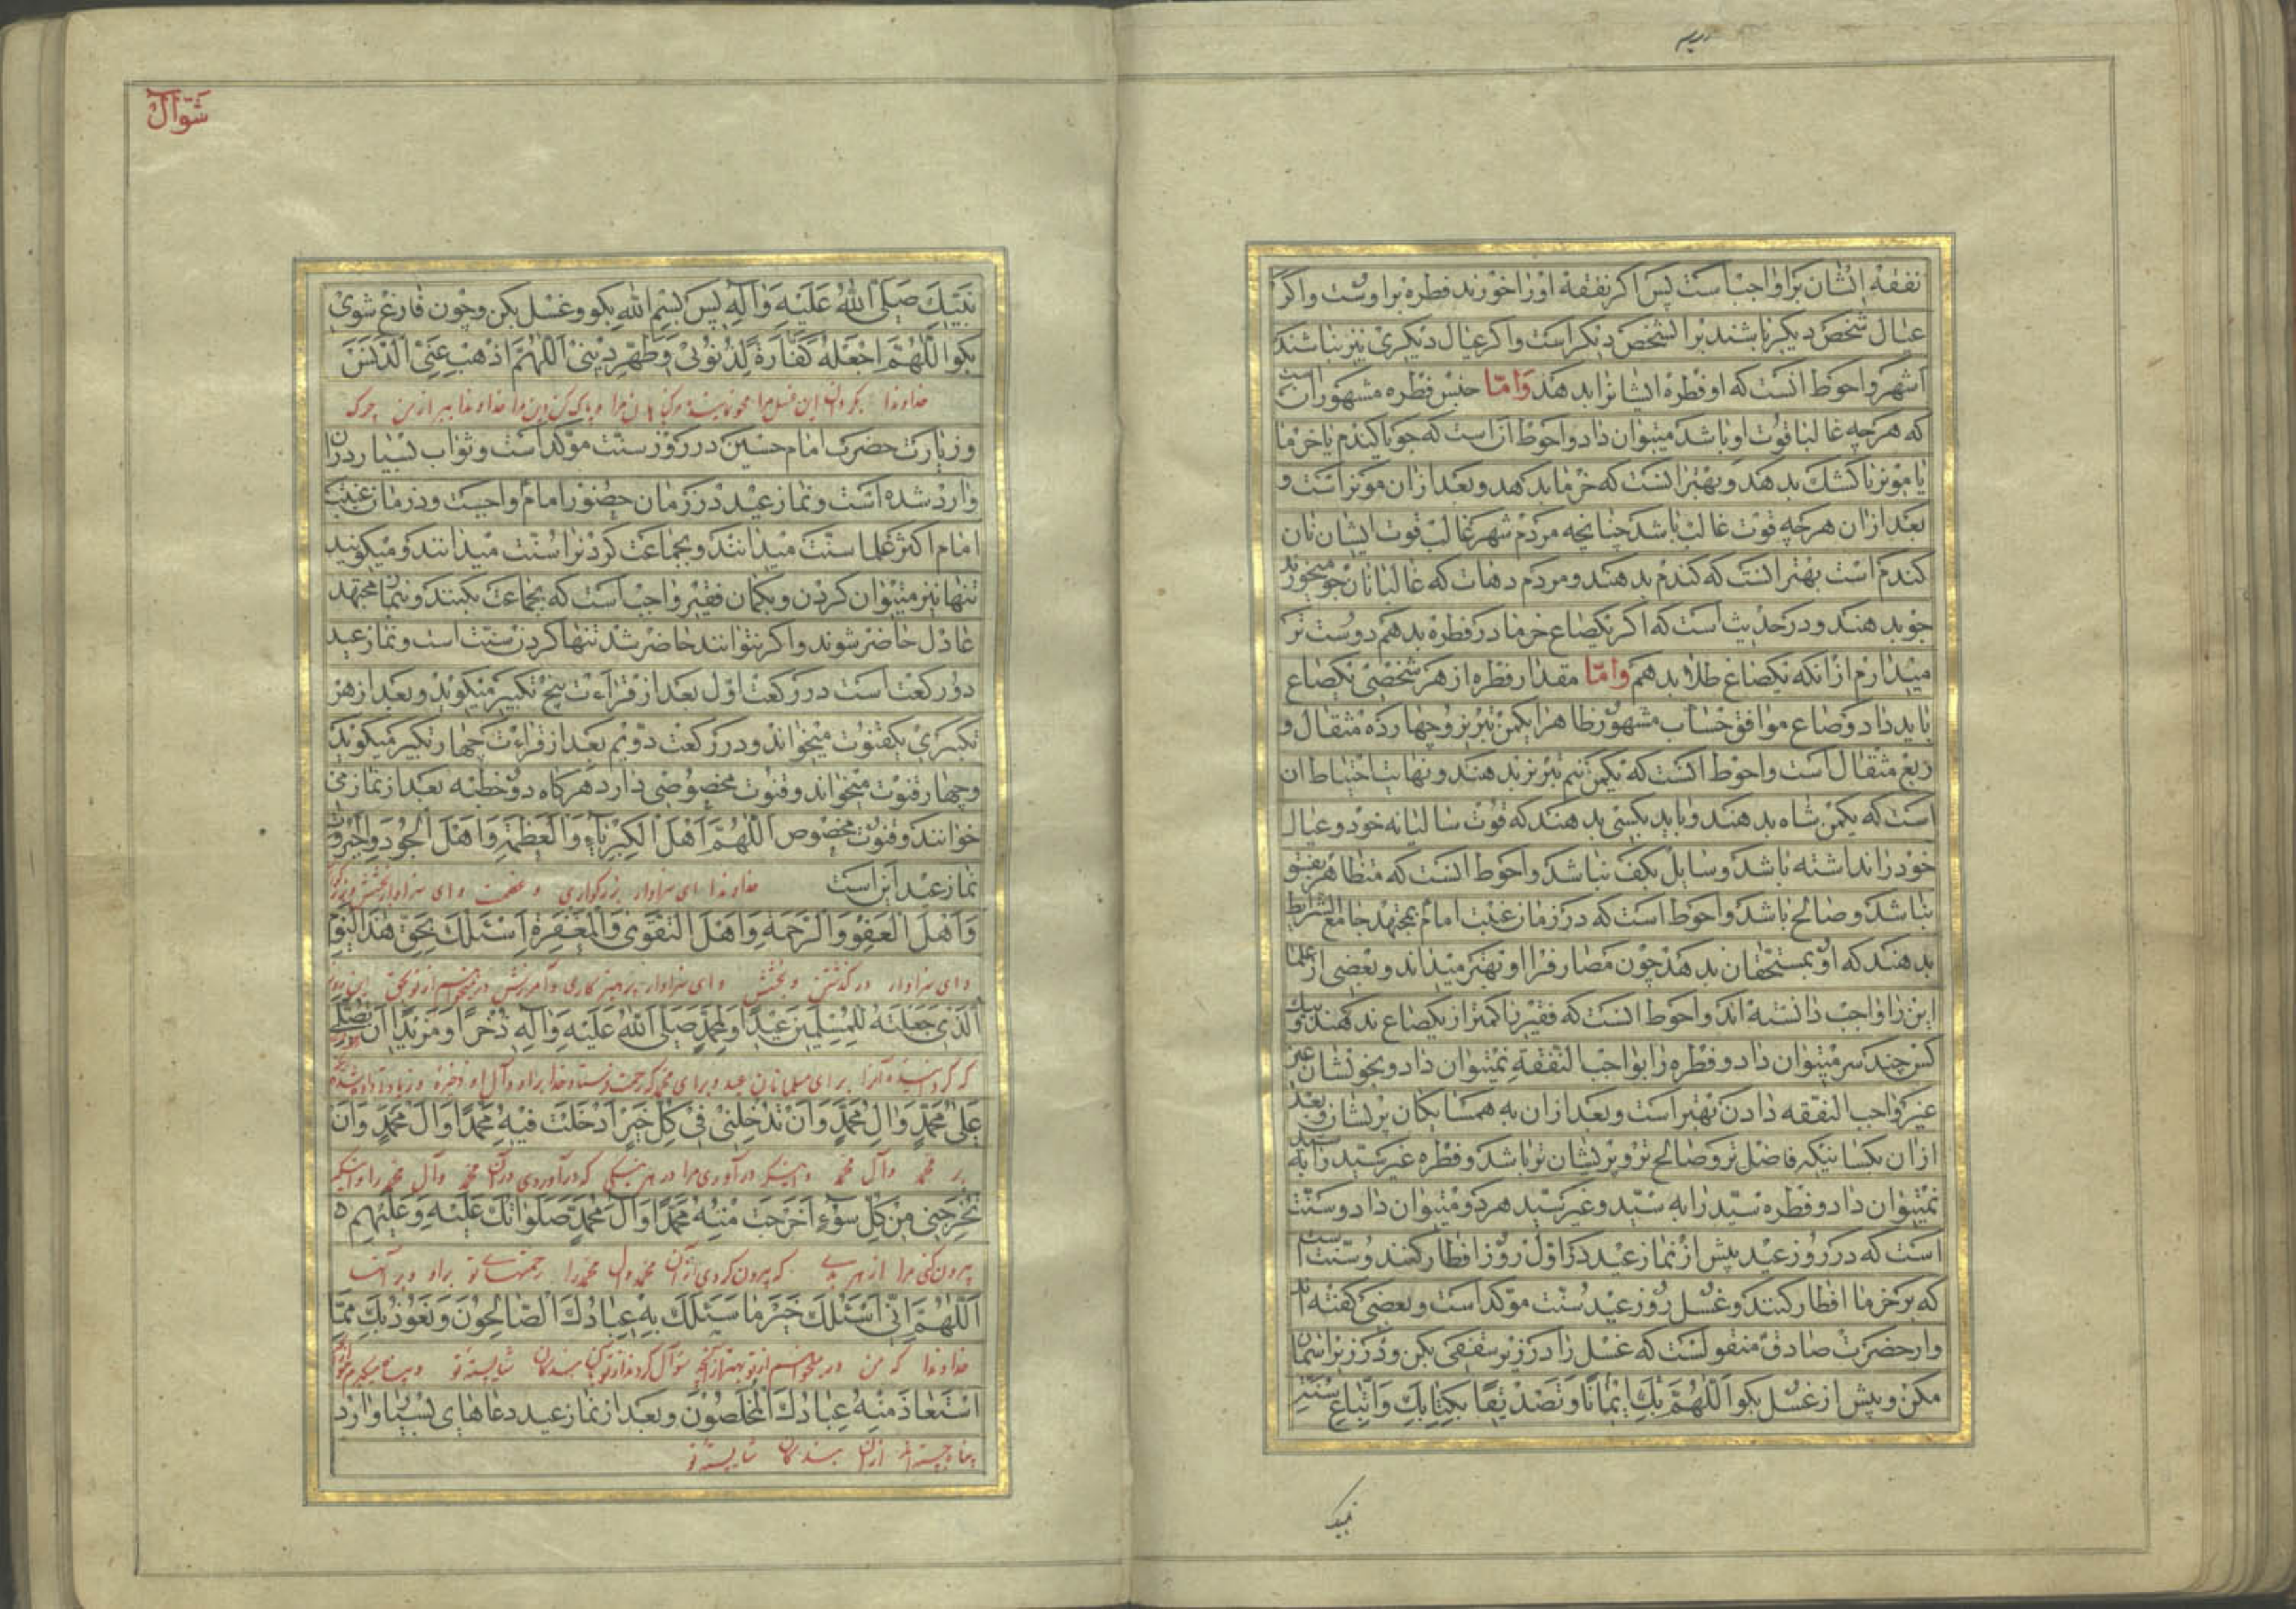 نفقهٔ ایشان بر او واجب است پس اگر نفقهٔ او را خورند فطره بر اوست واگر
عیال شخص دیگر باشند بر الشخص دیگر است واگر عیال دیگری نیز نباشند
اشهر واحوط انست که او فطره ایشانرا بدهند وَامّا جنس فطره مشهور انست
که هرچه غالبا قوت او باشد میتوان داد واحوط آن است که جو یا کندم یا خرما
یا مویز یا کشک بدهد وبهتر انست که خرما بدهد وبعد از ان مویز است و
بعد از ان هرچه قوت غالب باشد چنانچه مردم شهر غالب قوت ایشان نان
کندم است بهتر انست که کندم بدهند ومردم دهات که غالبا نان جو میخورند
جو بدهند ودر حدیث است که اکر یکصاع خرما در فطره بدهم دوست تر
میدارم از انکه یکصاع طلا بدهم وامّا مقدار فطره از هر شخصی یکصاع
باید داد وصاع موافق حساب مشهور ظاهرا یکمن تبریز وچهارده مثقال و
ربع مثقال است واحوط انست که یکمن نیم تبریز بدهند ونهایت احتیاط ان
است که یکمن شاه بدهند وباید بکسی بدهند که قوت سالیانه خود وعیال
خود را نداشته باشد وسایل بکف نباشد واحوط انست که متظاهر بفسق
نباشد وصالح باشد واحوط است که در زمان غیبت امام بمجتهد جامع الشرایط
بدهند که او بمستحقان بدهد چون مصارفرا او بهتر میداند وبعضی از علما
این را واجب دانسته اند واحوط انست که فقیر را کمتر از یکصاع ندهند وبیک
کس چند سر میتوان داد وفطره را بواجب النفقهٔ نمیتوان داد وبخویشان غیر
غیر واجب النفقه دادن بهتر است وبعد ازان به همسایکان پریشان وبعد
ازان بکسانیکه فاضل تر وصالح تر وپریشان تر باشد وفطره غیر سیّد را به سید
نمیتوان داد وفطره سیّد را به سیّد وغیر سیّد هر دو میتوان داد وسنّت
است که در روز عید پیش از نماز عید در اول روز افطار کنند وسنّت است
که بر خرما افطار کنند وغسل روز عید سنّت موکد است وبعضی کفته اند
واز حضرت صادق منقولست که غسل را در زیر سقفی بکن ودر زیر اسمان
مکن وپیش از غسل بکو اَللّهُمَّ بِكَ اِیْمَانًا وَتَصْدِیْقًا بِكِتَابِكَ وَاتِّبَاعِ سُنَّتِ
شوّال
نَبِیِّكَ صَلَّى اللهُ عَلَیْهِ وَآلِهِ پس بِسْمِ اللهِ بکو وغسل بکن وچون فارغ شوی
بکو اَللّهُمَّ اجْعَلْهُ كَفَّارَةً لِذُنُوْبِیْ وَطَهِّرْ دِیْنِیْ اَللّهُمَّ اذْهِبْ عَنِّیَ الدَّنَسَ
خداوندا بکردان این غسل مرا محو نماینده گناهان مرا و پاک کن دین مرا خداوندا ببر از من چرک
وزیارت حضرت امام حسین در روز سنّت موکد است وثواب بسیار در ان
وارد شده است ونماز عید در زمان حضور امام واجبست ودر زمان غیبت
امام اکثر علما سنّت میدانند وبجماعت کردنرا سنّت میدانند ومیکویند
تنها نیز میتوان کردن وبکمان فقیر واجب است که بجماعت بکنند وبنماز مجتهد
عادل حاضر شوند واکر نتوانند حاضر شد تنها کردن سنّت است ونماز عید
دو رکعت است در رکعت اوّل بعد از قراءت پنج تکبیر میکوید وبعد از هر
تکبیری یکقنوت میخواند ودر رکعت دویم بعد از قراءت چهار تکبیر میکوید
وچهار قنوت میخواند وقنوت مخصوصی دارد هرکاه دو خطبه بعد از نماز می
خوانند وقنوت مخصوص اَللّهُمَّ اَهْلَ الْكِبْرِیَاءِ وَالْعَظَمَةِ وَاَهْلَ الْجُوْدِ وَالْجَبَرُوْتِ
نماز عید این است خداوندا ای سزاوار بزرکواری و عظمت و ای سزاوار بخشش وبزرکواری
وَاَهْلَ الْعَفْوِ وَالرَّحْمَةِ وَاَهْلَ التَّقْوٰى وَالْمَغْفِرَةِ اَسْئَلُكَ بِحَقِّ هٰذَا الْیَوْمِ
و ای سزاوار درکذشتن و بخشش و ای سزاوار پرهیزکاری و آمرزش درمیخواهم از تو بحق این روز
اَلَّذِیْ جَعَلْتَهُ لِلْمُسْلِمِیْنَ عِیْدًا وَلِمُحَمَّدٍ صَلَّى اللهُ عَلَیْهِ وَآلِهِ ذُخْرًا وَمَزِیْدًا اَنْ تُصَلِّیَ
که کردانیده آنرا برای مسلمانان عید و برای محمد که رحمت فرستاد خدا بر او و آل او ذخیره و زیاده
عَلٰى مُحَمَّدٍ وَاٰلِ مُحَمَّدٍ وَاَنْ تُدْخِلَنِیْ فِیْ كُلِّ خَیْرٍ اَدْخَلْتَ فِیْهِ مُحَمَّدًا وَاٰلَ مُحَمَّدٍ وَاَنْ
بر محمد وآل محمد و اینکه درآوری مرا در هر نیکی که درآوردی در ان محمد وآل محمد را و اینکه
تُخْرِجَنِیْ مِنْ كُلِّ سُوْءٍ اَخْرَجْتَ مِنْهُ مُحَمَّدًا وَاٰلَ مُحَمَّدٍ صَلَوَاتُكَ عَلَیْهِ وَعَلَیْهِمْ
بیرون کنی مرا از هر بدی که بیرون کردی از آن محمد وآل محمد را رحمتهای تو بر او و بر آنها
اَللّهُمَّ اِنِّیْ اَسْئَلُكَ خَیْرَ مَا سَئَلَكَ بِهِ عِبَادُكَ الصَّالِحُوْنَ وَنَعُوْذُ بِكَ مِمَّا
خداوندا که من درمیخواهم از تو بهتر از آنچه سؤال کردند از تو بندکان شایسته تو و پناه میکیرم
اسْتَعَاذَ مِنْهُ عِبَادُكَ الْمُخْلَصُوْنَ وبعد از نماز عید دعاهای بسیار وارد
پناه جسته اند از ان بندکان شایسته تو